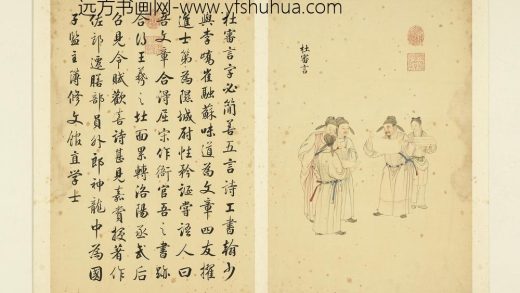 远方书画网- www.yfshuhua.com
杜審言
杜審言字必簡善五言詩工書翰少
與李嶠崔融蘇味道為文章四友擢
進士第為隰城尉性矜誕嘗語人曰
吾文章合得屈宋作衙官吾之書跡
合得王羲之北面累轉洛陽丞武后
召見令賦歡喜詩甚見嘉賞授著作
佐郎遷膳部員外郎神龍中為國
子監主簿修文館直學士